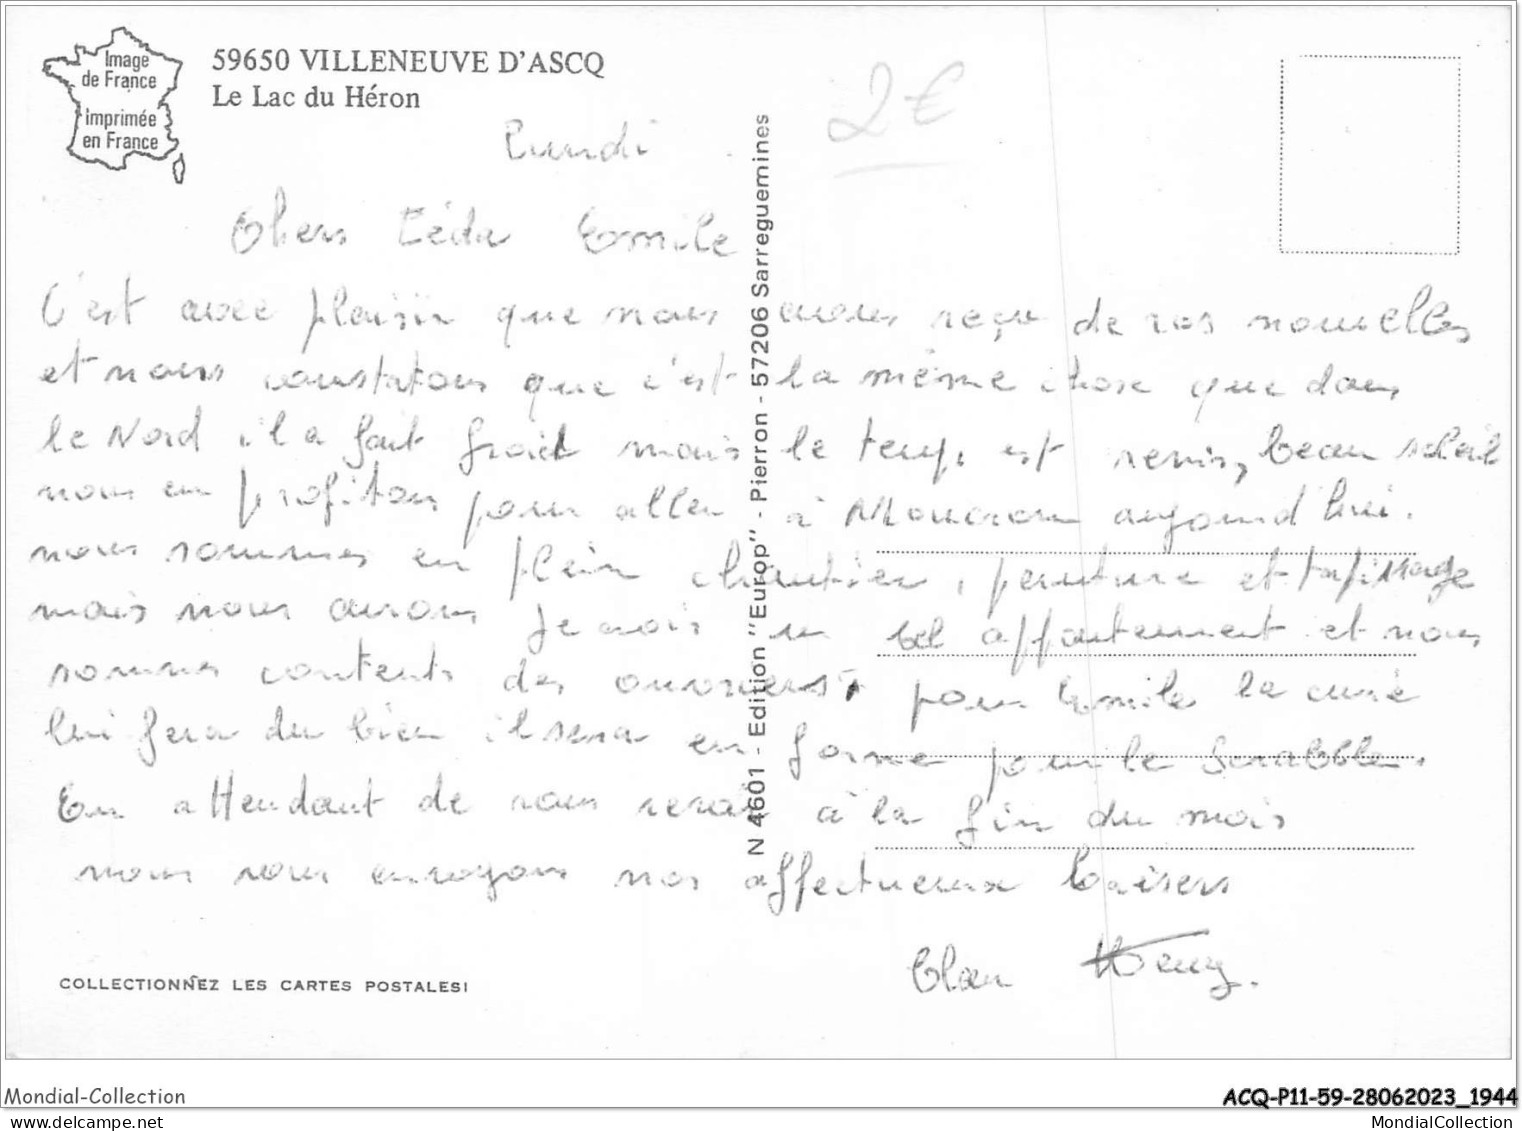 Image
de France
imprimée
en France
59650 VILLENEUVE D'ASCQ
Le Lac du Héron
2€
Lundi
Chers Léda Emile
C'est avec plaisir que nous avons reçu de vos nouvelles
et nous constatons que c'est la même chose que dans
le Nord il a fait froid mais le temps est remis, beau soleil
nous en profitons pour aller à Moucron aujourd'hui.
nous sommes en plein chantier, peinture et tapissage
mais nous aurons je crois un bel appartement et nous
sommes contents des ouvriers, pour Emile la cure
lui fera du bien il sera en forme pour le Scrabble.
En attendant de vous revoir à la fin du mois
nous vous envoyons nos affectueux baisers
Clan
N 4601 - Edition "Europ" - Pierron - 57206 Sarreguemines
COLLECTIONNEZ LES CARTES POSTALES!
Mondial-Collection
ACQ-P11-59-28062023_1944
MondialCollection.delcampe.net
MondialCollection